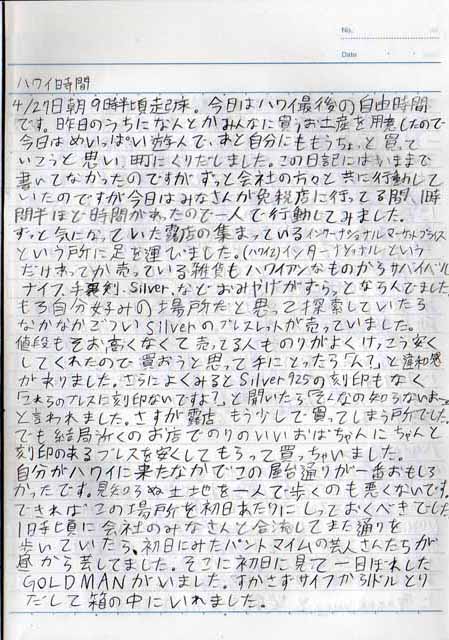 No.
Date
ハワイ時間
4/27日朝9時半頃起床。今日はハワイ最後の自由時間
です。昨日のうちになんとかみんなに買うお土産を用意したので
今日はめいっぱい遊んで、あと自分にももうちょっと買って
いこうと思い、町にくりだしました。この日記にはいままで
書いてなかったのですがずっと会社の方々と共に行動して
いたのですが今日はみなさんが免税店に行ってる間、1時
間半ほど時間があったので一人で行動してみました。
ずっと気になっていた露店の集まっているインターナショナルマーケットプライス
という所に足を運びました。(ハワイに)インターナショナルという
だけあってか売っている雑貨もハワイアンなものからサバイバル
ナイフ、手裏剣、Silver、などおみやげがずらっとならんでました。
もろ自分好みの場所だと思って探索していたら
なかなかごついSilverのブレスレットが売っていました。
値段もそお高くなくて売ってる人ものりがよくけっこう安く
してくれたので買おうと思って手にとったら「ん?」と違和感
がありました。さらによくみるとSilver925の刻印もなく
「これらのブレスに刻印ないですよ?」と聞いたら「そんなの知らないよー」
と言われました。さすが露店 もう少しで買ってしまう所でした。
でも結局近くのお店でのりのいいおばちゃんにちゃんと
刻印のあるブレスを安くしてもらって買っちゃいました。
自分がハワイに来たなかでこの屋台通りが一番おもしろ
かったです。見知らぬ土地を一人で歩くのも悪くないです。
できればこの場所を初日あたりにしっておくべきでした
1時半頃に会社のみなさんと合流してまた通りを
歩いていたら、初日にみたパントマイムの芸人さんたちが
昼から芸してました。そこに初日に見て一目ぼれした
GOLDMANがいました。すかさずサイフから1ドルとり
だして箱の中にいれました。